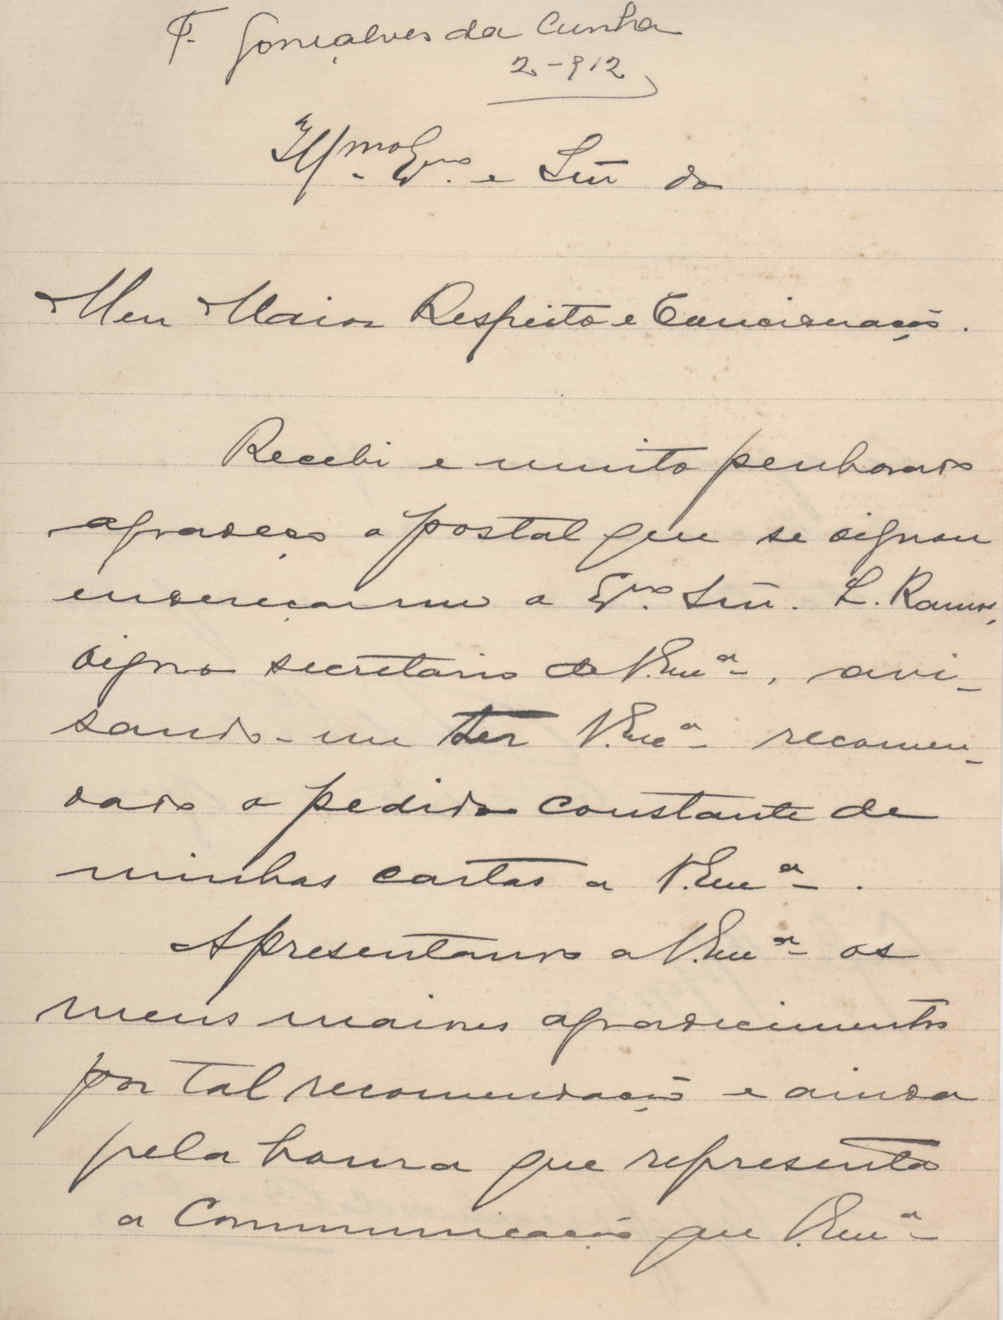 F. Gonçalves da Cunha
2-912
Illmo Exmo. e Snr do
Meu Maior Respeito e Concideração.
Recebi e muito penhorado
agradeço o postal que se dignou
endereçar-me o Exmo. Snr. L. Ramos,
digno secretario de V. Exª, avi-
sando-me ter V. Exª recomen-
dado o pedido constante de
minhas cartas a V. Exª.
Apresentando a V. Exª os
meus maiores agradecimentos
por tal recomendação e ainda
pela honra que representa
a Communicação que V. Exª